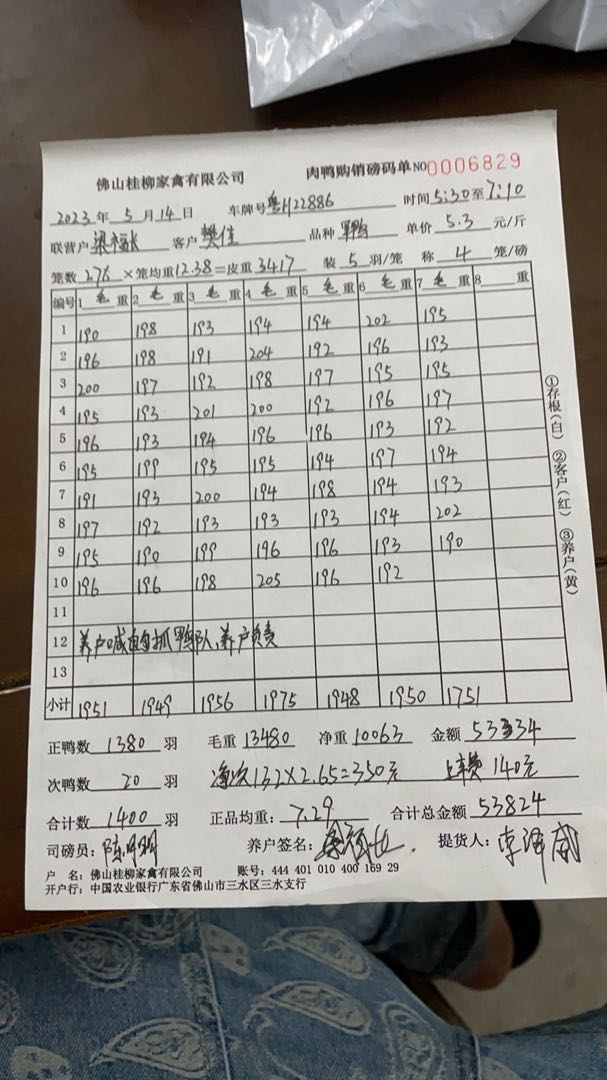 佛山桂柳家禽有限公司 肉鸭购销磅码单 NO 0006829
2023年 5 月 14 日 车牌号 粤H22886 时间 5:30 至 7:10
联营户 梁福长 客户 樊佳 品种 单价 5.3 元/斤
笼数 276 ×笼均重 12.38 =皮重 3417 装 5 羽/笼 称 4 笼/磅
编号 1 毛 重 2 毛 重 3 毛 重 4 毛 重 5 毛 重 6 毛 重 7 毛 重 8 重
1 190 198 193 194 194 202 195
2 196 198 191 204 192 196 193
3 200 197 192 198 197 195 195
4 195 193 201 200 192 196 197
5 196 193 194 196 196 193 192
6 195 199 195 195 194 197 194
7 191 193 200 194 198 194 193
8 197 192 193 193 193 194 202
9 195 190 199 196 196 193 190
10 196 196 198 205 196 192
11
12 养户喊自抓鸭队,养户负责
13
小计 1951 1949 1956 1975 1948 1950 1751
正鸭数 1380 羽 毛重 13480 净重 10063 金额 53334
次鸭数 20 羽 净次132×2.65=350元 上车费 140元
合计数 1400 羽 正品均重: 7.29 合计总金额 53824
司磅员: 养户签名: 梁福长 提货人:
户 名: 佛山桂柳家禽有限公司 账号: 444 401 010 400 169 29
开户行: 中国农业银行广东省佛山市三水区三水支行
①存根(白) ②客户(红) ③养户(黄)